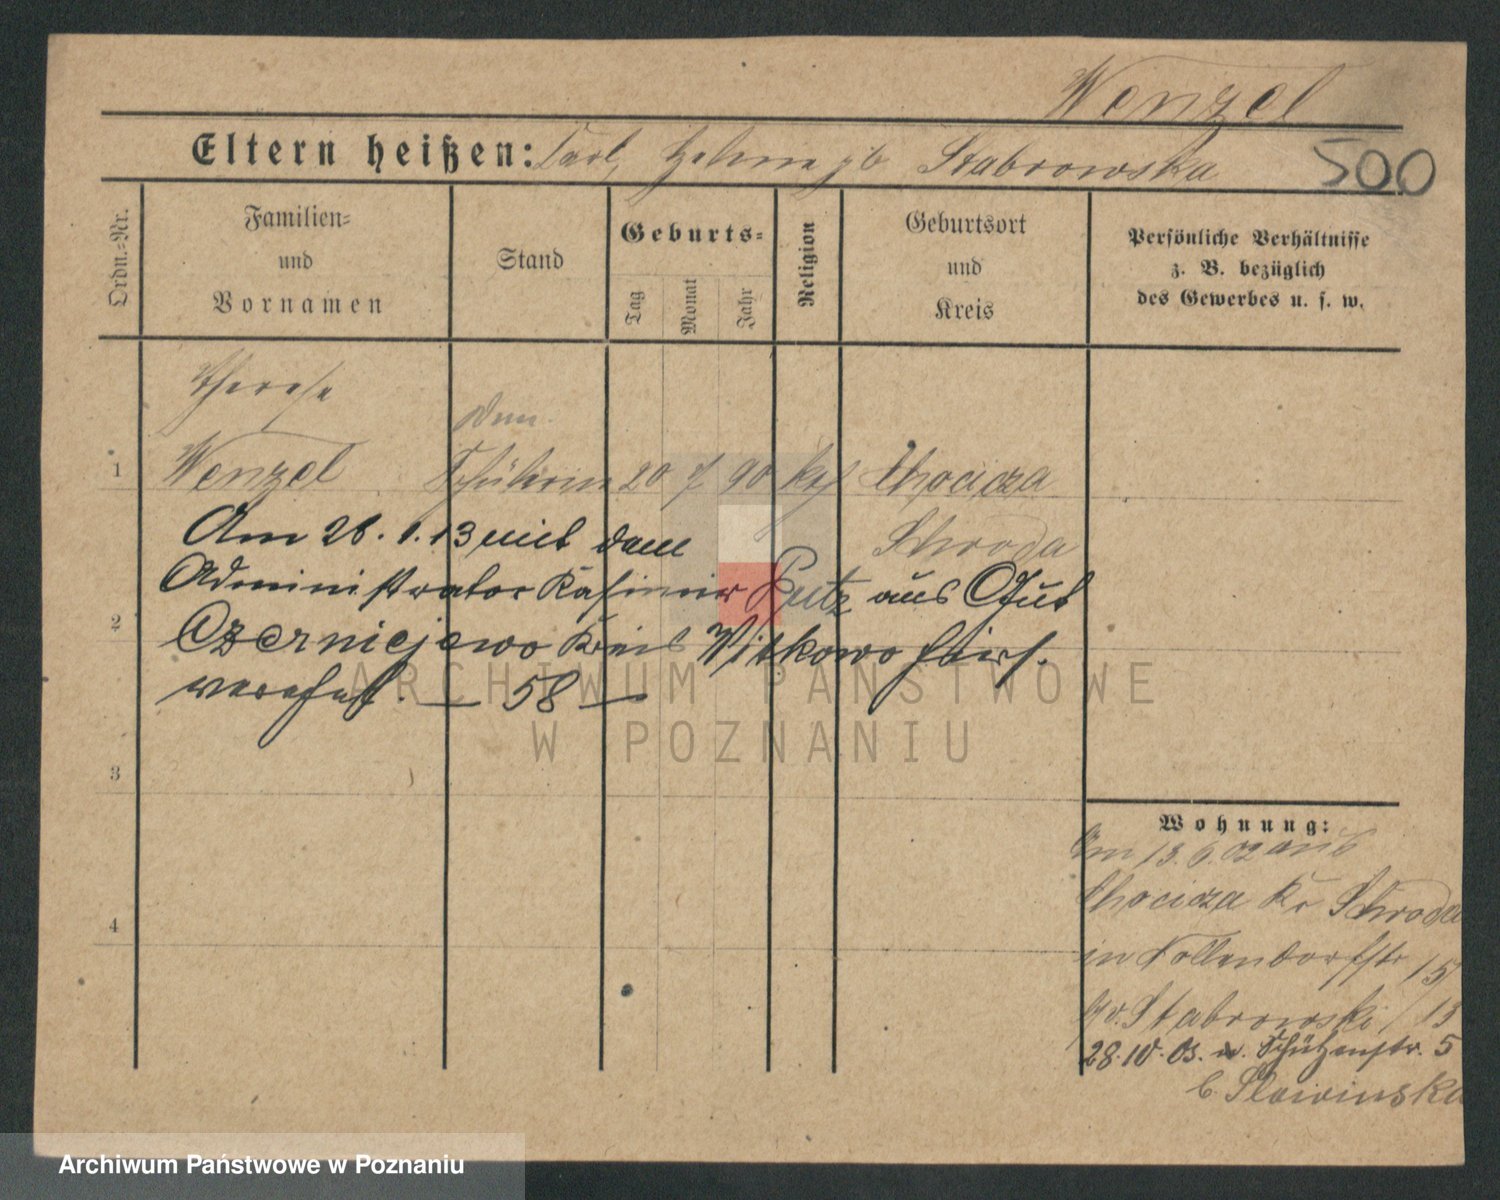 Wenzel
Eltern heißen: Carl, Helene gb Stabrowska
500
Ordn.-Nr.
Familien-
und
Vornamen
Stand
Geburts-
Tag
Monat
Jahr
Religion
Geburtsort
und
Kreis
Persönliche Verhältnisse
z. B. bezüglich
des Gewerbes u. s. w.
Therese
1 Wenzel Schülerin 20 7 90 kth Chocicza
Schroda
Am 28. 1. 13 mit dem
Administrator Kasimir aus Gut
2
Czerniejewo Kreis Witkowo hiers.
vereh. — 58 —
3
4
Wohnung:
Am 13.6.02 aus
Chocicza Kr Schroda
in Nollendorfstr 15
Stabrowski / 13
28.10.03. n. Schützenstr. 5
b Slawinska
ARCHIWUM PAŃSTWOWE
W POZNANIU
Archiwum Państwowe w Poznaniu